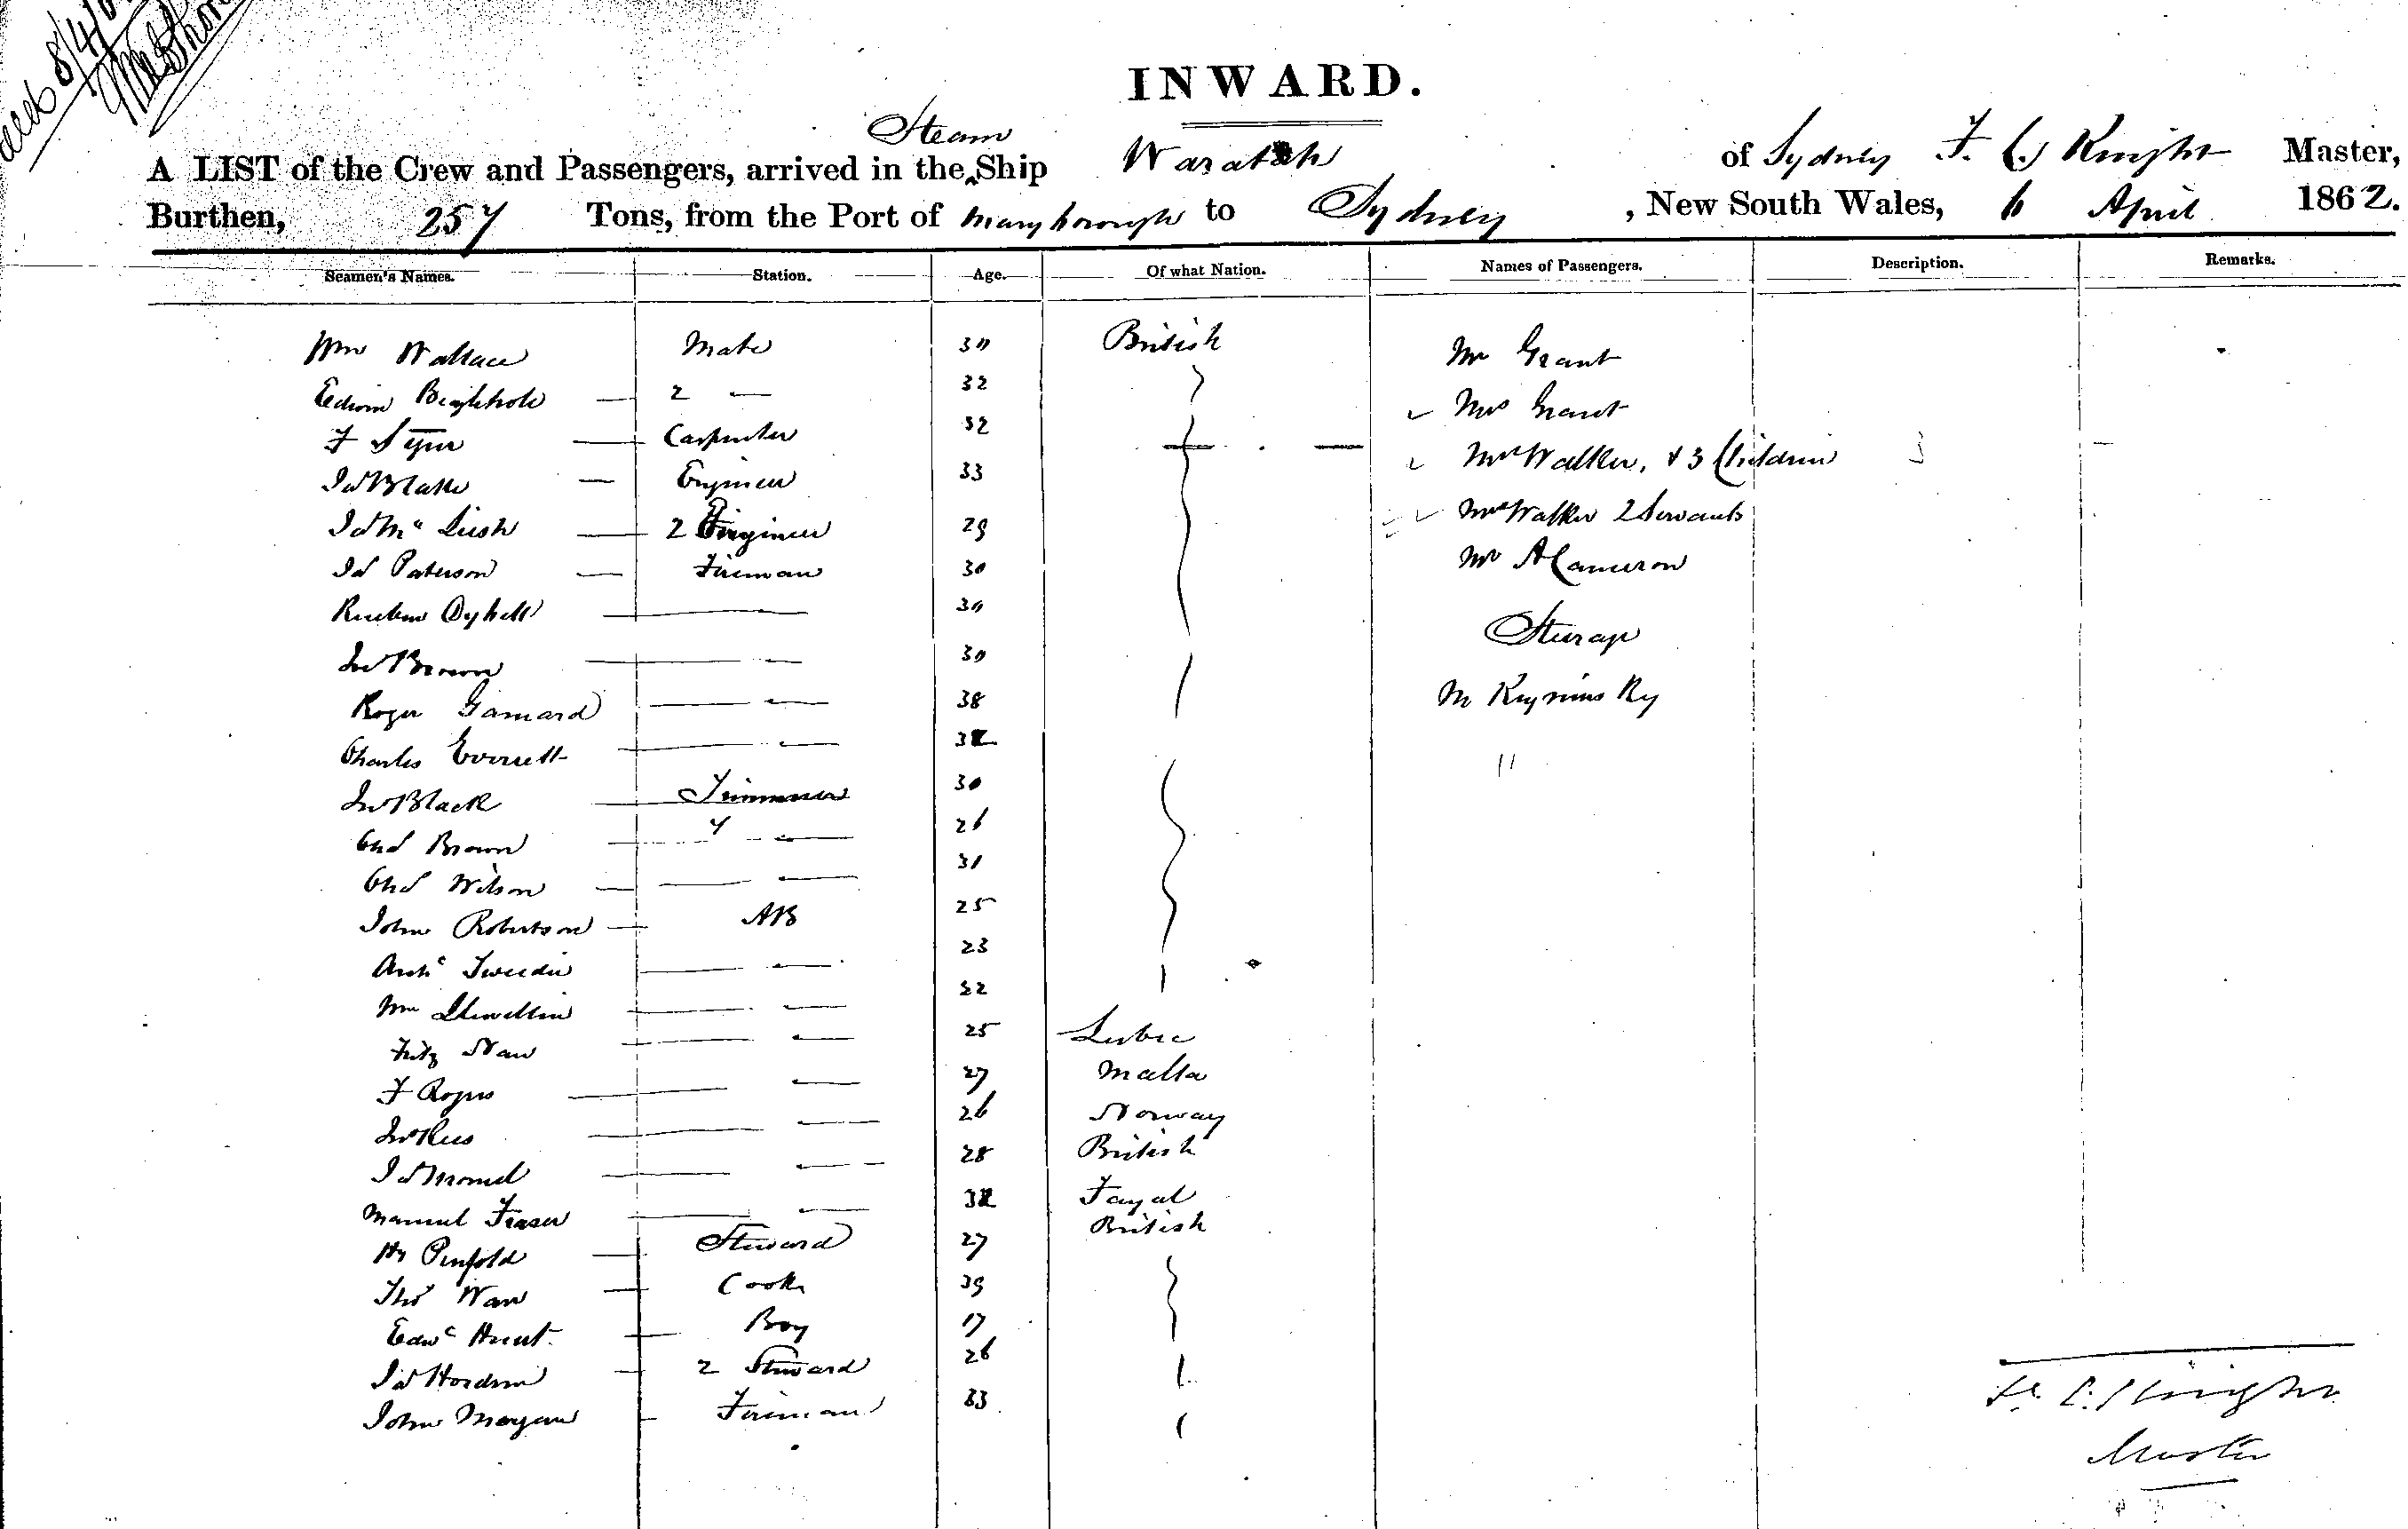 INWARD.
Steam
A LIST of the Crew and Passengers, arrived in the ^ Ship Waratah of Sydney F. C. Knight Master,
Burthen, 257 Tons, from the Port of Maryborough to Sydney, New South Wales, 6 April 1862.
Seamen's Names. Station. Age. Of what Nation. Names of Passengers. Description. Remarks.
Wm Wallace Mate 30 British Mr Grant
Edwin 2 — 32 Mrs Grant
F Carpenter 32 Mr Walker, & 3 Children
Jas Blake Engineer 33 Mrs Walker 2 Servants
Jas Mc Leish 2 Engineer 29
Jas Paterson Fireman 30 Mr A Cameron
Reuben 30 Steerage
Jno Brown 30
Roger 38 M
Charles Everett 32 "
Jno Black Trimmer 30
Chas Brown 26
Chas Wilson 31
John Robertson AB 25
Archd Tweedie 23
Wm Llewellin 22
Fritz 25 Lubec
F Rogers 27 Malta
Jno Rees 26 Norway
Jas 28 British
Manuel Fraser 32 Fayal
Hy Penfold Steward 27 British
Thos Cook 39
Edwd Hunt. Boy 17
Jas Hordern 2 Steward 26
John Morgan Fireman 33
F. C. Knight
Master